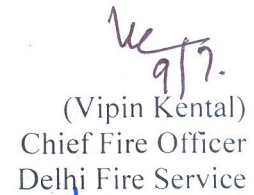 9/7.
(Vipin Kental)
Chief Fire Officer
Delhi Fire Service